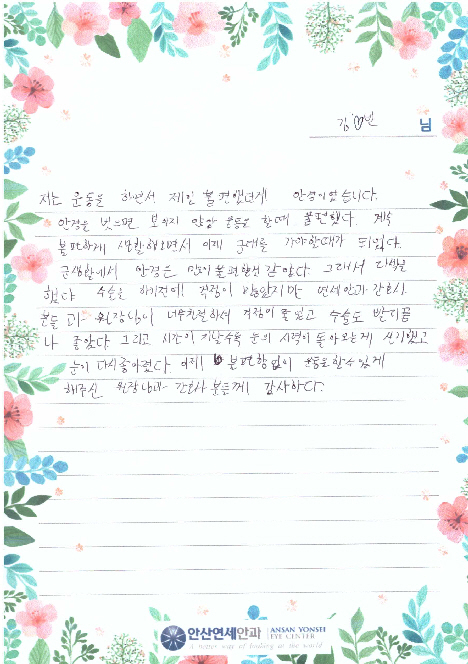 김♡빈 님
저는 운동을 하면서 제일 불편했던게 안경이였습니다.
안경을 벗으면 보이지 않아 운동을 할때 불편했다. 계속
불편하게 생활해오면서 이제 군대를 가야할때가 되었다.
군생활에서 안경은 많이 불편할것 같았다. 그래서 라섹을
했다 수술을 하기전에 걱정이 많았지만 연세안과 간호사
분들과 원장님이 너무친절하셔 걱정이 줄었고 수술도 받고
나 좋았다 그리고 시간이 지날수록 눈의 시력이 돌아오는게 신기했고
눈이 다시좋아졌다. 이제 불편함없이 운동을할수있게
해주신 원장님과 간호사 분들께 감사하다.
안산연세안과 ANSAN YONSEI
EYE CENTER
A better way of looking at the world